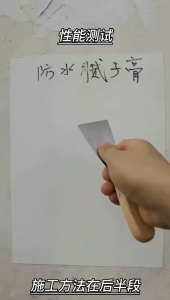 性能测试
防水腻子膏
施工方法在后半段